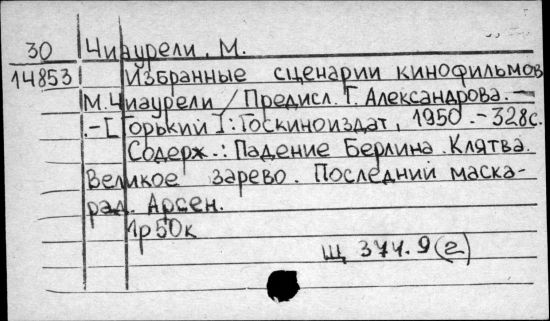 30 Чиаурели, М.
14853 Избранные сценарии кинофильмов
М.Чиаурели / Предисл. Г. Александрова. —
.–[Горький]: Госкиноиздат, 1950. – 328с.
Содерж.: Падение Берлина. Клятва.
Великое зарево. Последний маска-
рад. Арсен.
1р50к
Щ 374.9(2)